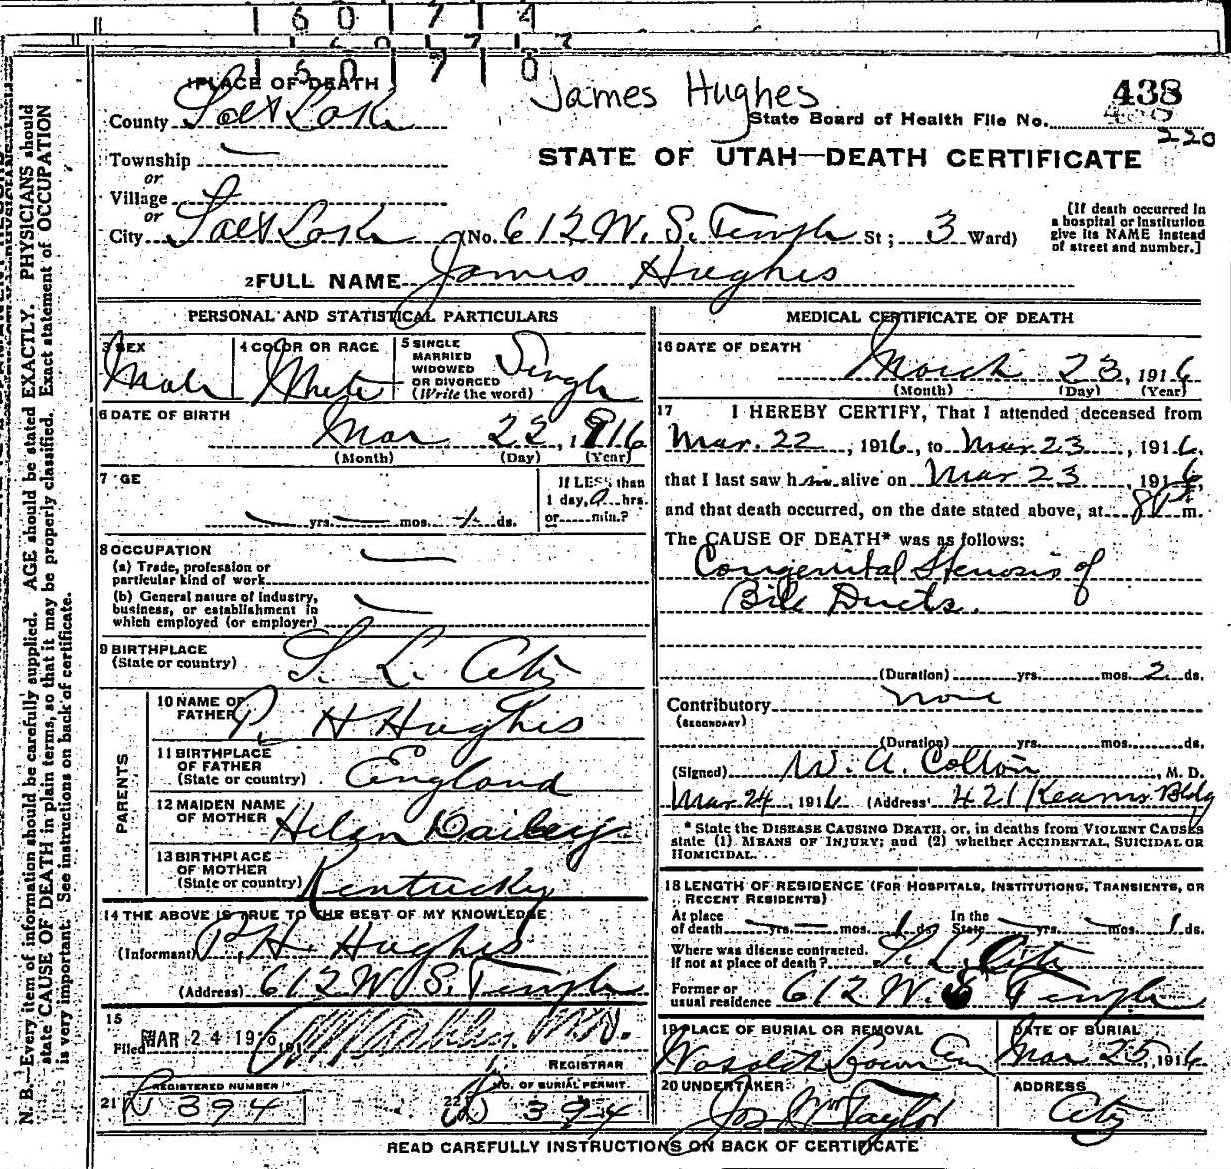 1 6 0 1 7 1 4
1 PLACE OF DEATH
James Hughes
438
County Salt Lake
State Board of Health File No.
220
Township —
STATE OF UTAH—DEATH CERTIFICATE
or
Village
or
City Salt Lake (No. 612 W. S. Temple St; 3 Ward)
[If death occurred in
a hospital or institution
give its NAME instead
of street and number.]
2 FULL NAME James Hughes
PERSONAL AND STATISTICAL PARTICULARS
3 SEX
Male
4 COLOR OR RACE
White
5 SINGLE
MARRIED
WIDOWED
OR DIVORCED
(Write the word)
Single
6 DATE OF BIRTH
Mar 22, 1916
(Month) (Day) (Year)
7 GE
— yrs. — mos. 1 ds.
If LESS than
1 day, 0 hrs.
or min.?
8 OCCUPATION
(a) Trade, profession or
particular kind of work
(b) General nature of industry,
business, or establishment in
which employed (or employer)
9 BIRTHPLACE
(State or country)
S. L. City
PARENTS
10 NAME OF
FATHER
P. H Hughes
11 BIRTHPLACE
OF FATHER
(State or country)
England
12 MAIDEN NAME
OF MOTHER
Helen Dailey
13 BIRTHPLACE
OF MOTHER
(State or country)
Kentucky
14 THE ABOVE IS TRUE TO THE BEST OF MY KNOWLEDGE
(Informant) P. H. Hughes
(Address) 612 W S. Temple
15
Filed MAR 24 1916 191
M.D.
REGISTRAR
REGISTERED NUMBER
21 D 394
NO. OF BURIAL PERMIT
22 D 394
MEDICAL CERTIFICATE OF DEATH
16 DATE OF DEATH
March 23, 1916
(Month) (Day) (Year)
17 I HEREBY CERTIFY, That I attended deceased from
Mar. 22, 1916, to Mar 23, 1916,
that I last saw him alive on Mar 23, 1916,
and that death occurred, on the date stated above, at 8P m.
The CAUSE OF DEATH* was as follows:
Congenital Stenosis of
Bile Ducts.
(Duration) yrs. mos. 2 ds.
Contributory none
(SECONDARY)
(Duration) yrs. mos. ds.
(Signed) W. A. Colton, M. D.
Mar 24, 1916 (Address) 421 Kearns Bldg
* State the DISEASE CAUSING DEATH, or, in deaths from VIOLENT CAUSES
state (1) MEANS OF INJURY; and (2) whether ACCIDENTAL, SUICIDAL OR
HOMICIDAL.
18 LENGTH OF RESIDENCE (FOR HOSPITALS, INSTITUTIONS, TRANSIENTS, OR
RECENT RESIDENTS)
At place
of death — yrs. — mos. 1 ds.
In the
State — yrs. — mos. 1 ds.
Where was disease contracted,
if not at place of death? S. L. City
Former or
usual residence 612 W. S Temple
19 PLACE OF BURIAL OR REMOVAL
Lawn Cem
DATE OF BURIAL
Mar 25, 1916
20 UNDERTAKER
Jos Wm Taylor
ADDRESS
City
READ CAREFULLY INSTRUCTIONS ON BACK OF CERTIFICATE
N. B.—Every item of information should be carefully supplied. AGE should be stated EXACTLY. PHYSICIANS should
state CAUSE OF DEATH in plain terms, so that it may be properly classified. Exact statement of OCCUPATION
is very important. See instructions on back of certificate.